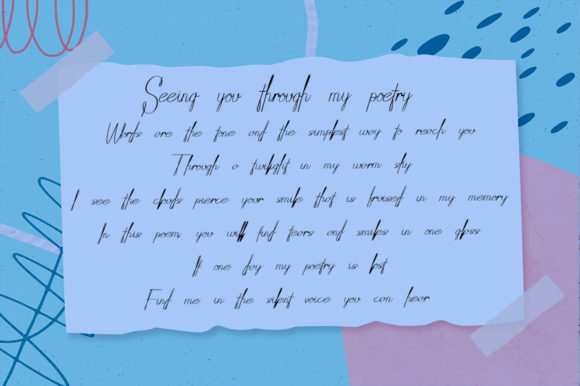 Seeing you through my poetry
Words are the tone and the simplest way to reach you
Through a twilight in my warm sky
I see the clouds pierce your smile that is in my memory
In this poem, you will find tears and smiles in one glass
If one day my poetry is lost
Find me in the silent voice you can hear